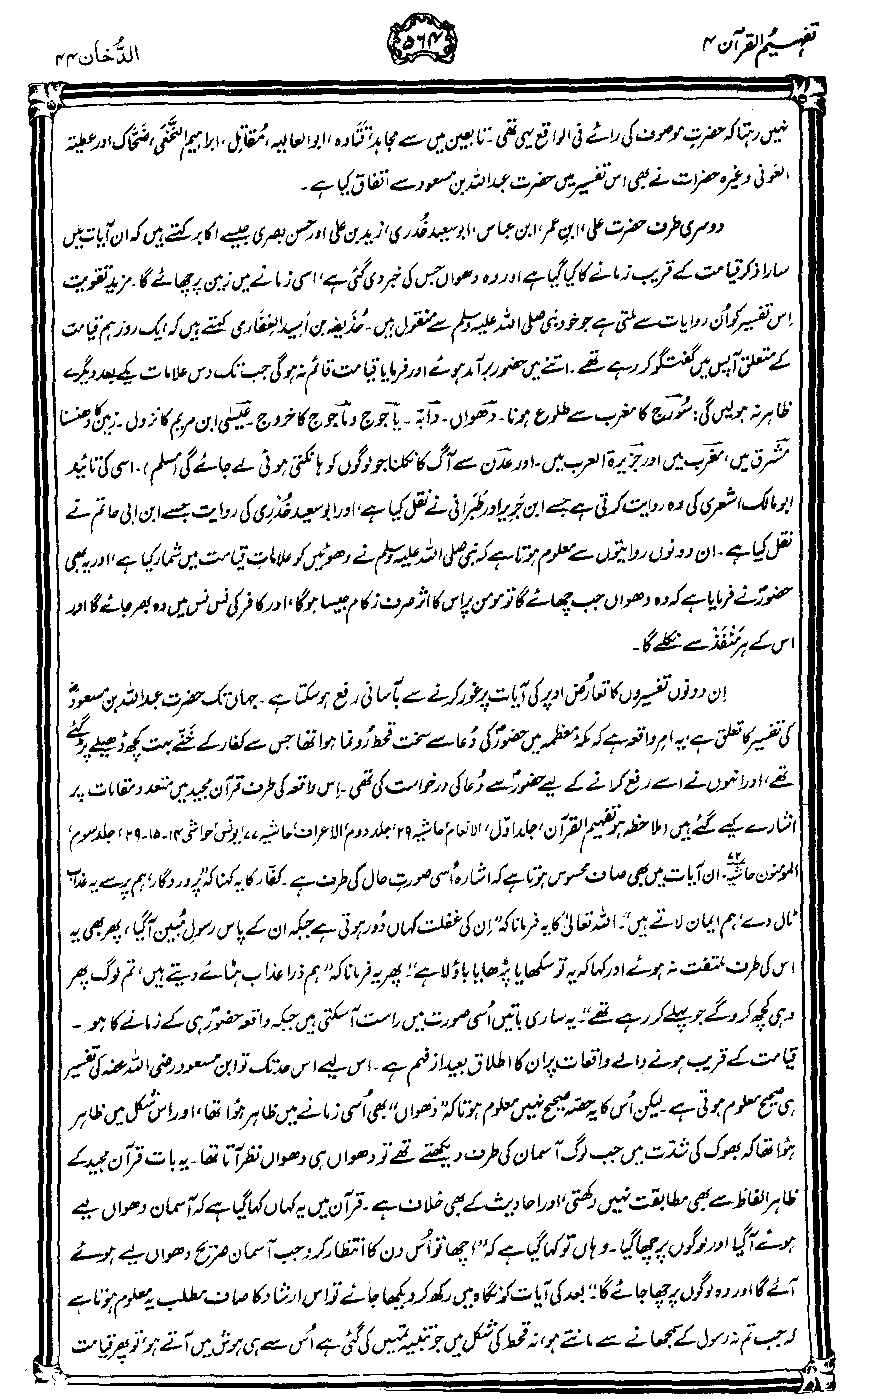 تفہیم القرآن ۴
۵۶۴
الدُّخان ۴۴
نہیں رہتا کہ حضرت موصوف کی رائے فی الواقع یہی تھی۔ تابعین میں سے مجاہد، قَتَادہ، ابوالعالیہ، مُقاتل، ابراہیم النَّخَعی، ضَحَّاک اور عطیّۃ
العَوفی وغیرہ حضرات نے بھی اس تفسیر میں حضرت عبداللہ بن مسعود سے اتفاق کیا ہے۔
دوسری طرف حضرت علی، ابن عمر، ابن عباس، ابوسعید خُدری، زید بن علی اور حسن بصری جیسے اکابر کہتے ہیں کہ ان آیات میں
سارا ذکر قیامت کے قریب زمانے کا کیا گیا ہے اور وہ دھواں جس کی خبر دی گئی ہے، اسی زمانے میں زمین پر چھائے گا۔ مزید تقویت
اِس تفسیر کو اُن روایات سے ملتی ہے جو خود نبی صلی اللہ علیہ وسلم سے منقول ہیں۔ حُذیفہ بن اَسِید الغِفاری کہتے ہیں کہ ایک روز ہم قیامت
کے متعلق آپس میں گفتگو کر رہے تھے۔ اتنے میں حضور برآمد ہوئے اور فرمایا قیامت قائم نہ ہوگی جب تک دس علامات یکے بعد دیگرے
ظاہر نہ ہو لیں گی: سُورج کا مغرب سے طلوع ہونا۔ دھواں۔ دابّہ۔ یاجوج و ماجوج کا خروج۔ عیسٰی ابن مریم کا نزول۔ زمین کا دھنسنا
مشرق میں، مغرب میں اور جزیرۃ العرب میں۔ اور عدن سے آگ کا نکلنا جو لوگوں کو ہانکتی ہوئی لے جائے گی (مسلم)۔ اسی کی تائید
ابو مالک اشعری کی وہ روایت کرتی ہے جسے ابن جریر اور طبرانی نے نقل کیا ہے، اور ابوسعید خُدری کی روایت جسے ابن ابی حاتم نے
نقل کیا ہے۔ ان دونوں روایتوں سے معلوم ہوتا ہے کہ نبی صلی اللہ علیہ وسلم نے دھوئیں کو علاماتِ قیامت میں شمار کیا ہے، اور یہ بھی
حضورؐ نے فرمایا ہے کہ وہ دھواں جب چھائے گا تو مومن پر اس کا اثر صرف زکام جیسا ہوگا، اور کافر کی نس نس میں وہ بھر جائے گا اور
اس کے ہر مَنْفَذ سے نکلے گا۔
اِن دونوں تفسیروں کا تعارُض اوپر کی آیات پر غور کرنے سے بآسانی رفع ہو سکتا ہے۔ جہاں تک حضرت عبداللہ بن مسعودؓ
کی تفسیر کا تعلق ہے، یہ امر واقعہ ہے کہ مکۂ معظمہ میں حضورؐ کی دُعا سے سخت قحط رُونما ہوا تھا جس سے کفار کے خَتے بہت کچھ ڈھیلے پڑ گئے
تھے، اور انہوں نے اسے رفع کرانے کے لیے حضورؐ سے دُعا کی درخواست کی تھی۔ اس واقعہ کی طرف قرآن مجید میں متعدد مقامات پر
اشارے کیے گئے ہیں (ملاحظہ ہو تفہیم القرآن، جلد اوّل، الانعام، حاشیہ ۲۹، جلد دوم، الاعراف، حاشیہ ۷۷، یونس، حواشی ۱۴-۱۵-۲۹، جلد سوم،
المؤمنون، حاشیہ ۷۲۔ ان آیات میں بھی صاف محسوس ہوتا ہے کہ اشارہ اُسی صورتِ حال کی طرف ہے۔ کفّار کا یہ کہنا کہ "پروردگار، ہم پر سے یہ عذاب
ٹال دے، ہم ایمان لاتے ہیں"۔ اللہ تعالیٰ کا یہ فرمانا کہ "اِن کی غفلت کہاں دُور ہوتی ہے جبکہ ان کے پاس رسولِ مُبین آگیا، پھر بھی یہ
اس کی طرف ملتفت نہ ہوئے اور کہا کہ یہ تو سکھایا پڑھایا باؤلا ہے"۔ پھر یہ فرمانا کہ "ہم ذرا عذاب ہٹائے دیتے ہیں، تم لوگ پھر
وہی کچھ کرو گے جو پہلے کر رہے تھے"۔ یہ ساری باتیں اُسی صورت میں راست آ سکتی ہیں جبکہ واقعہ حضورؐ ہی کے زمانے کا ہو۔
قیامت کے قریب ہونے والے واقعات پر ان کا اطلاق بعید از فہم ہے۔ اس لیے اس حد تک تو ابن مسعود رضی اللہ عنہ کی تفسیر
ہی صحیح معلوم ہوتی ہے۔ لیکن اُس کا یہ حصّہ صحیح نہیں معلوم ہوتا کہ "دھواں" بھی اُسی زمانے میں ظاہر ہُوا تھا، اور اس شکل میں ظاہر
ہُوا تھا کہ بھوک کی شدّت میں جب لوگ آسمان کی طرف دیکھتے تھے تو دھواں ہی دھواں نظر آتا تھا۔ یہ بات قرآن مجید کے
ظاہر الفاظ سے بھی مطابقت نہیں رکھتی، اور احادیث کے بھی خلاف ہے۔ قرآن میں یہ کہاں کہا گیا ہے کہ آسمان دھواں لیے
ہوئے آگیا اور لوگوں پر چھا گیا۔ وہاں تو کہا گیا ہے کہ "اچھا تو اُس دن کا انتظار کرو جب آسمان صریح دھواں لیے ہوئے
آئے گا اور وہ لوگوں پر چھا جائے گا"۔ بعد کی آیات کو نگاہ میں رکھ کر دیکھا جائے تو اس ارشاد کا صاف مطلب یہ معلوم ہوتا ہے
کہ جب تم نہ رسول کے سمجھانے سے مانتے ہو، نہ قحط کی شکل میں جو تنبیہ تمہیں کی گئی ہے اُس سے ہی ہوش میں آتے ہو، تو پھر قیامت